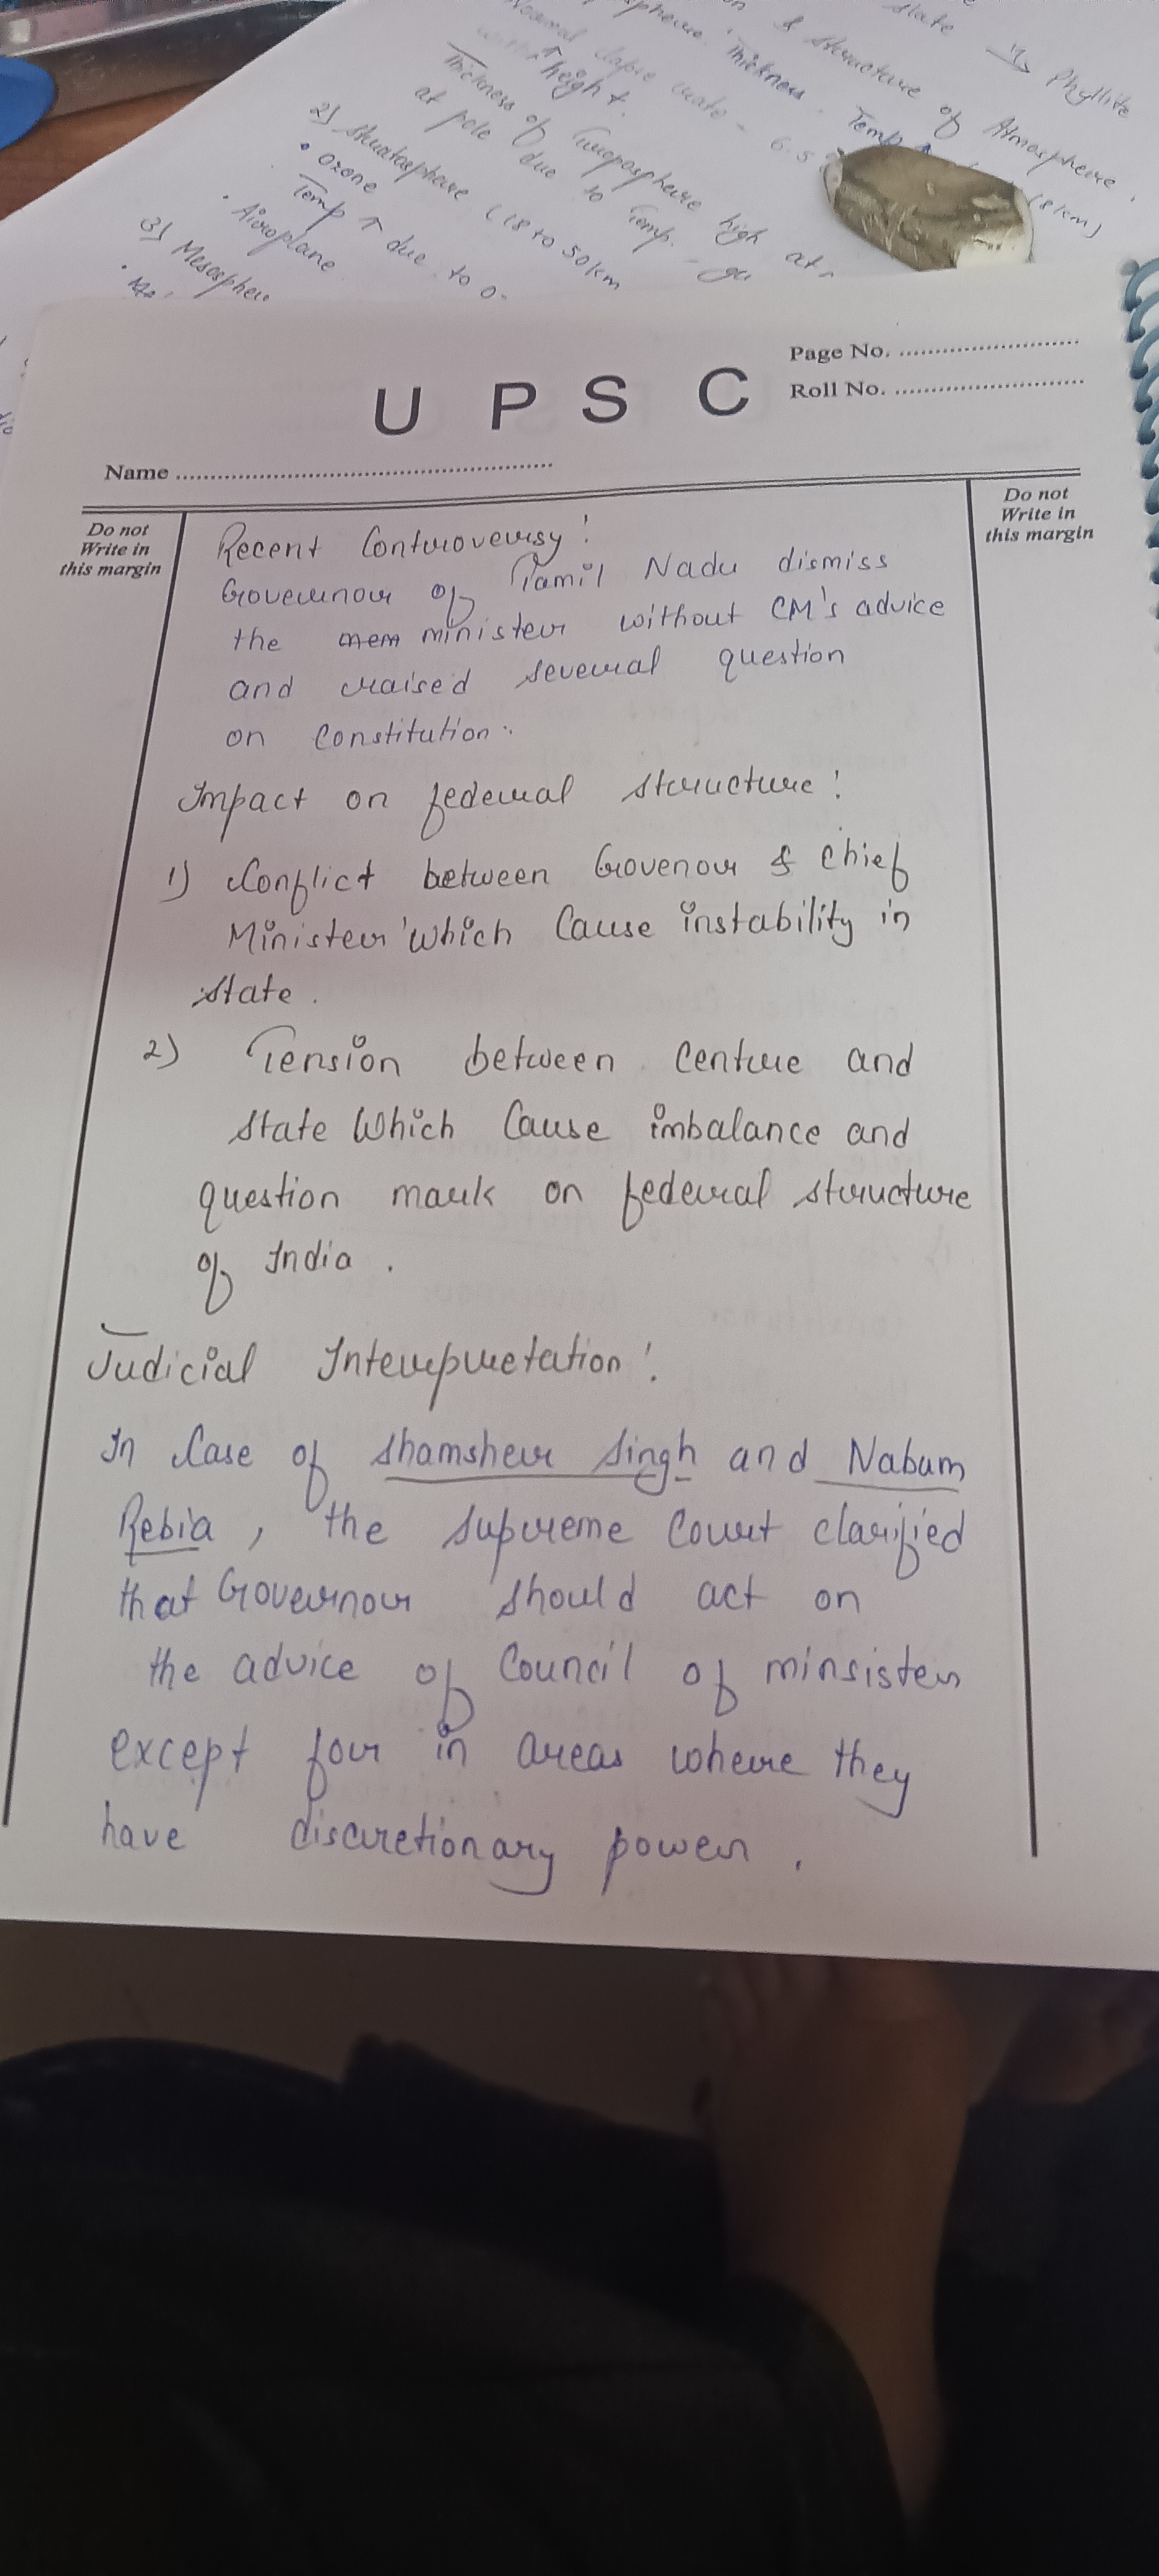 state → Phyllite
& structure of Atmosphere
Thickness
Temp ↑
(8km)
Normal lapse rate - 6.5
↑ height.
Thickness of Troposphere high at
at pole due to Temp.
2) Stratosphere (18 to 50km
• Ozone
Temp ↑ due to o
• Airoplane
3) Mesospher
U P S C
Page No.
Roll No.
Name
Do not
Write in
this margin
Do not
Write in
this margin
Recent Controversy :
Governor of Tamil Nadu dismiss
the minister without CM's advice
and raised several question
on Constitution.
Impact on federal structure :
1) Conflict between Govenor & Chief
Minister which Cause instability in
state.
2) Tension between Centre and
state Which Cause imbalance and
question mark on federal structure
of India.
Judicial Interpretation :
In Case of Shamsher Singh and Nabam
Rebia, the Supreme Court clarified
that Governor should act on
the advice of Council of minsister
except for in areas where they
have discretionary power.